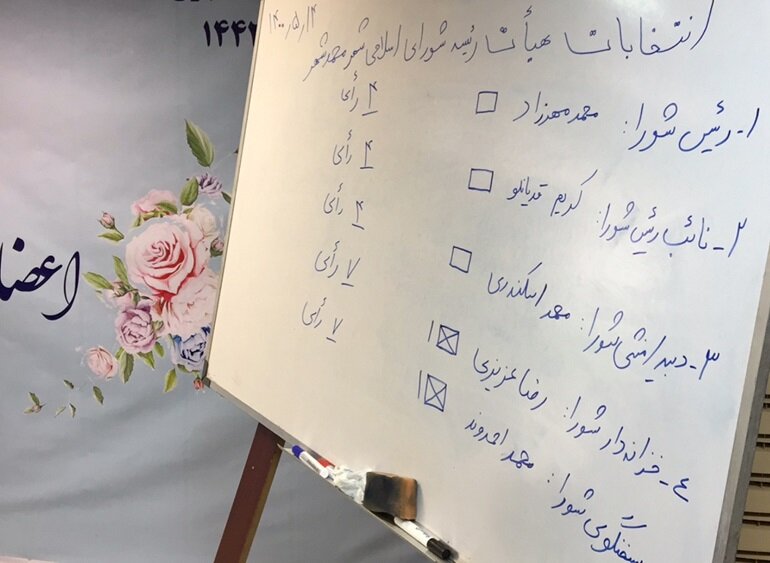 انتخابات هیأت رئیسه شورای اسلامی شهر مهدیشهر
۱۴۰۰،۵،۱۴
۱- رئیس شورا: محمد مهرزاد □ ۴ رأی
۲- نائب رئیس شورا: کریم قدیانلو □ ۴ رأی
۳- دبیر / منشی شورا: محمد اسکندری □ ۴ رأی
۴- خزانه دار شورا: رضا عزیزی ☒ ۱ ۷ رأی
سخنگوی شورا: محمد احدوند ☒ ۱ ۷ رأی
اعضا